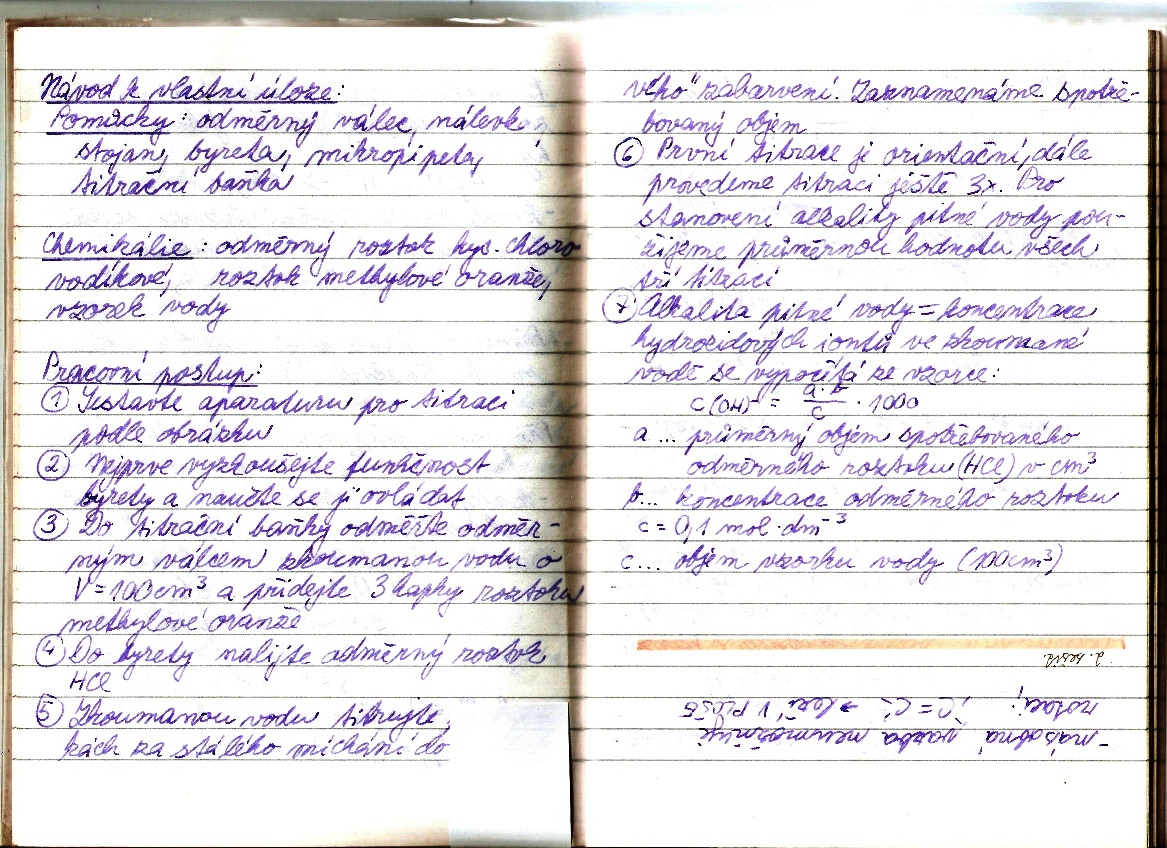 Návod k vlastní úloze:
Pomůcky: odměrný válec, nálevka,
stojan, byreta, mikropipety,
titrační baňka
Chemikálie: odměrný roztok kys. chloro
vodíkové, roztok methylové oranže,
vzorek vody
Pracovní postup:
① Sestavte aparaturu pro titraci
podle obrázku
② Nejprve vyzkoušejte funkčnost
byrety a naučte se ji ovládat
③ Do titrační baňky odměřte odměr-
ným válcem zkoumanou vodu o
V = 100 cm³ a přidejte 3 kapky roztoku
methylové oranže
④ Do byrety nalijte odměrný roztok
HCl
⑤ Zkoumanou vodu titrujte,
kách za stálého míchání do
vého" zabarvení. Zaznamenáme spotře-
bovaný objem
⑥ První titrace je orientační, dále
provedeme titraci ještě 3x. Pro
stanovení alkality pitné vody pou-
žijeme průměrnou hodnotu všech
tří titrací
⑦ Alkalita pitné vody = koncentrace
hydroxidových iontů ve zkoumané
vodě se vypočítá ze vzorce:
c(OH)⁻ = a·b/c · 1000
a ... průměrný objem spotřebovaného
odměrného roztoku (HCl) v cm³
b... koncentrace odměrného roztoku
c = 0,1 mol·dm⁻³
c... objem vzorku vody (100cm³)
2. sešit
- násobná vazba neumožňuje
rotaci; C=C; → leží v ploše